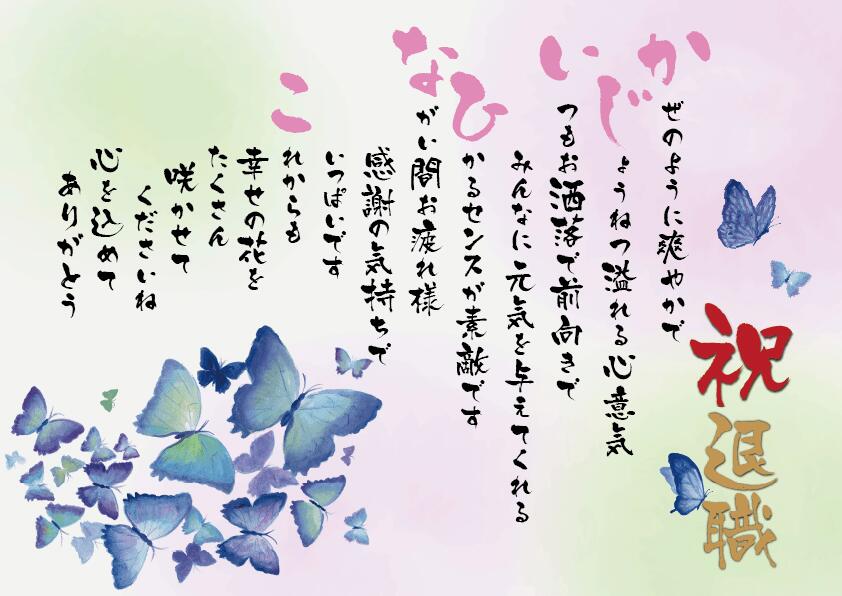 祝
退職
かぜのように爽やかで
じょうねつ溢れる心意気
いつもお洒落で前向きで
みんなに元気を与えてくれる
ひかるセンスが素敵です
ながい間お疲れ様
感謝の気持ちで
いっぱいです
これからも
幸せの花を
たくさん
咲かせて
くださいね
心を込めて
ありがとう